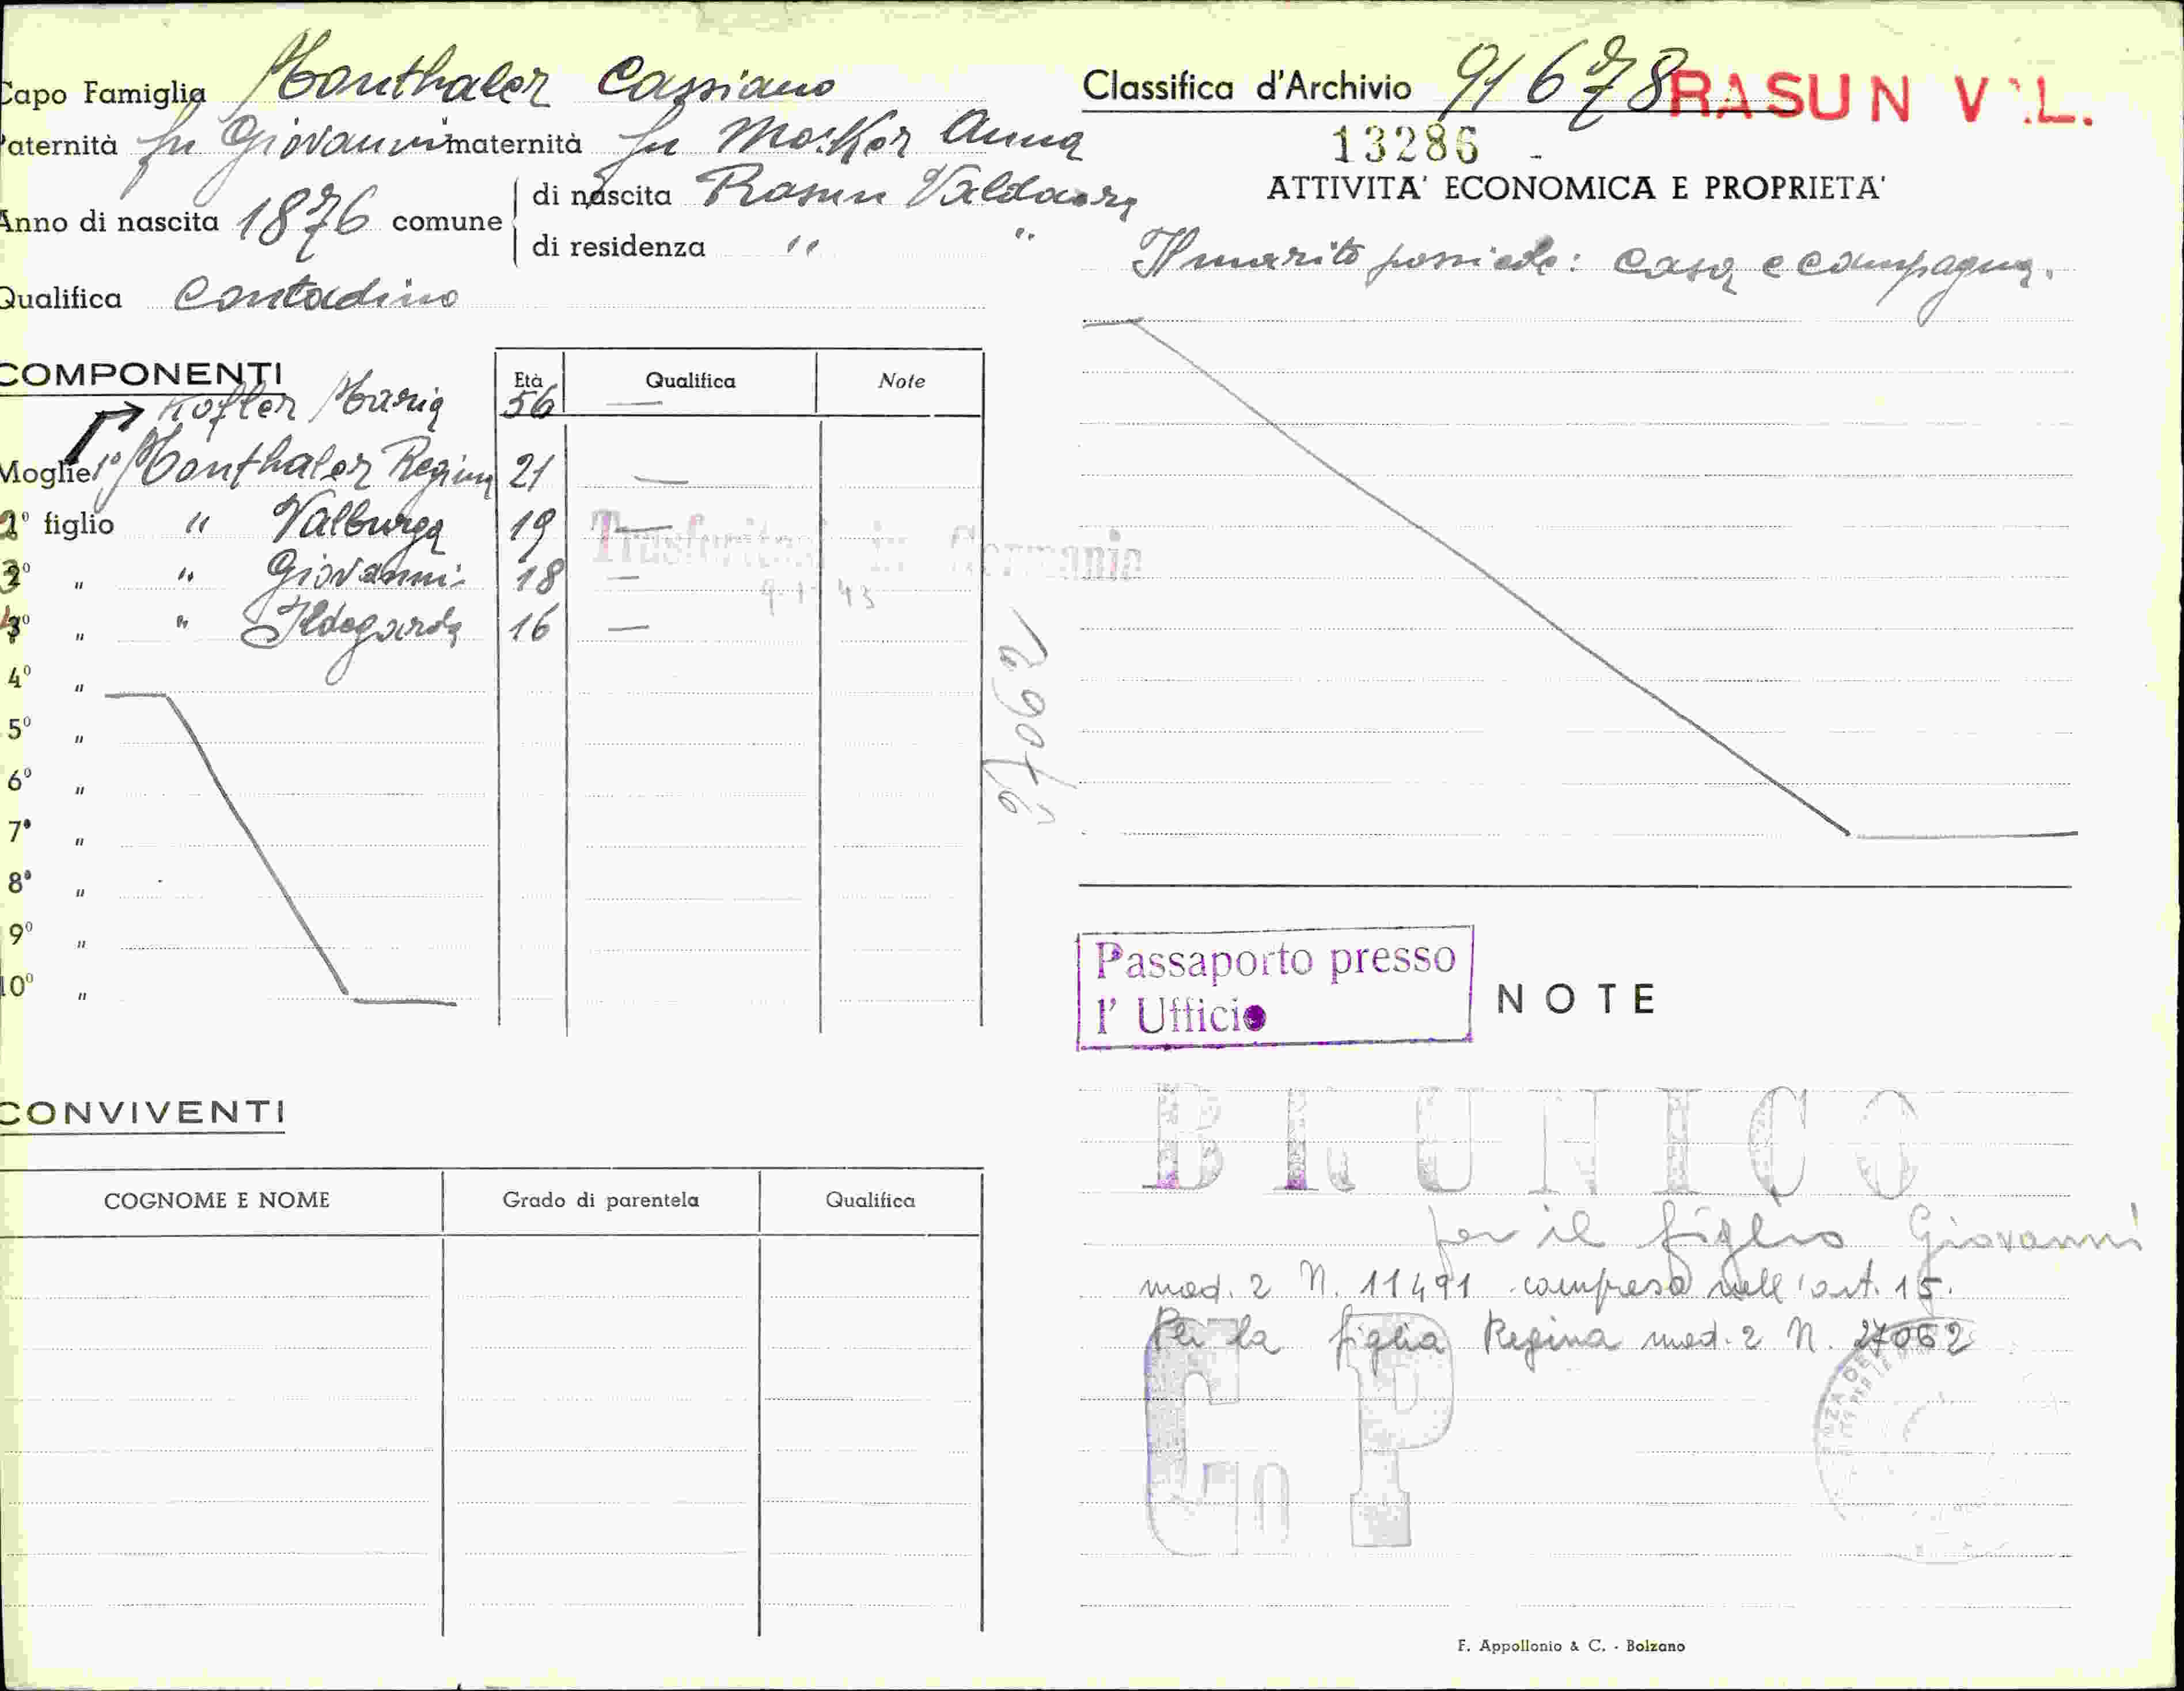 Capo Famiglia Monthaler Cassiano
Paternità fu Giovanni maternità fu Anna
Anno di nascita 1876 comune di nascita Rasun Valdaora
di residenza " "
Qualifica Contadino
COMPONENTI
Età Qualifica Note
Kofler Maria 56 —
Moglie 1° Monthaler Regina 21 —
2° figlio " Valburga 19 —
3° " " Giovanni 18 —
4° " " Ildegarda 16 —
4° "
5° "
6° "
7° "
8° "
9° "
10° "
Trasferitosi in Germania
43
27062
CONVIVENTI
COGNOME E NOME Grado di parentela Qualifica
Classifica d'Archivio 91678 RASUN V L.
13286 -
ATTIVITA' ECONOMICA E PROPRIETA'
Il marito possiede: casa e campagna.
Passaporto presso
l' Ufficio
NOTE
BRUNICO
per il figlio Giovanni
mod. 2 N. 11491 compreso nell'art. 15.
Per la figlia Regina mod. 2 N. 27062
P
F. Appollonio & C. - Bolzano